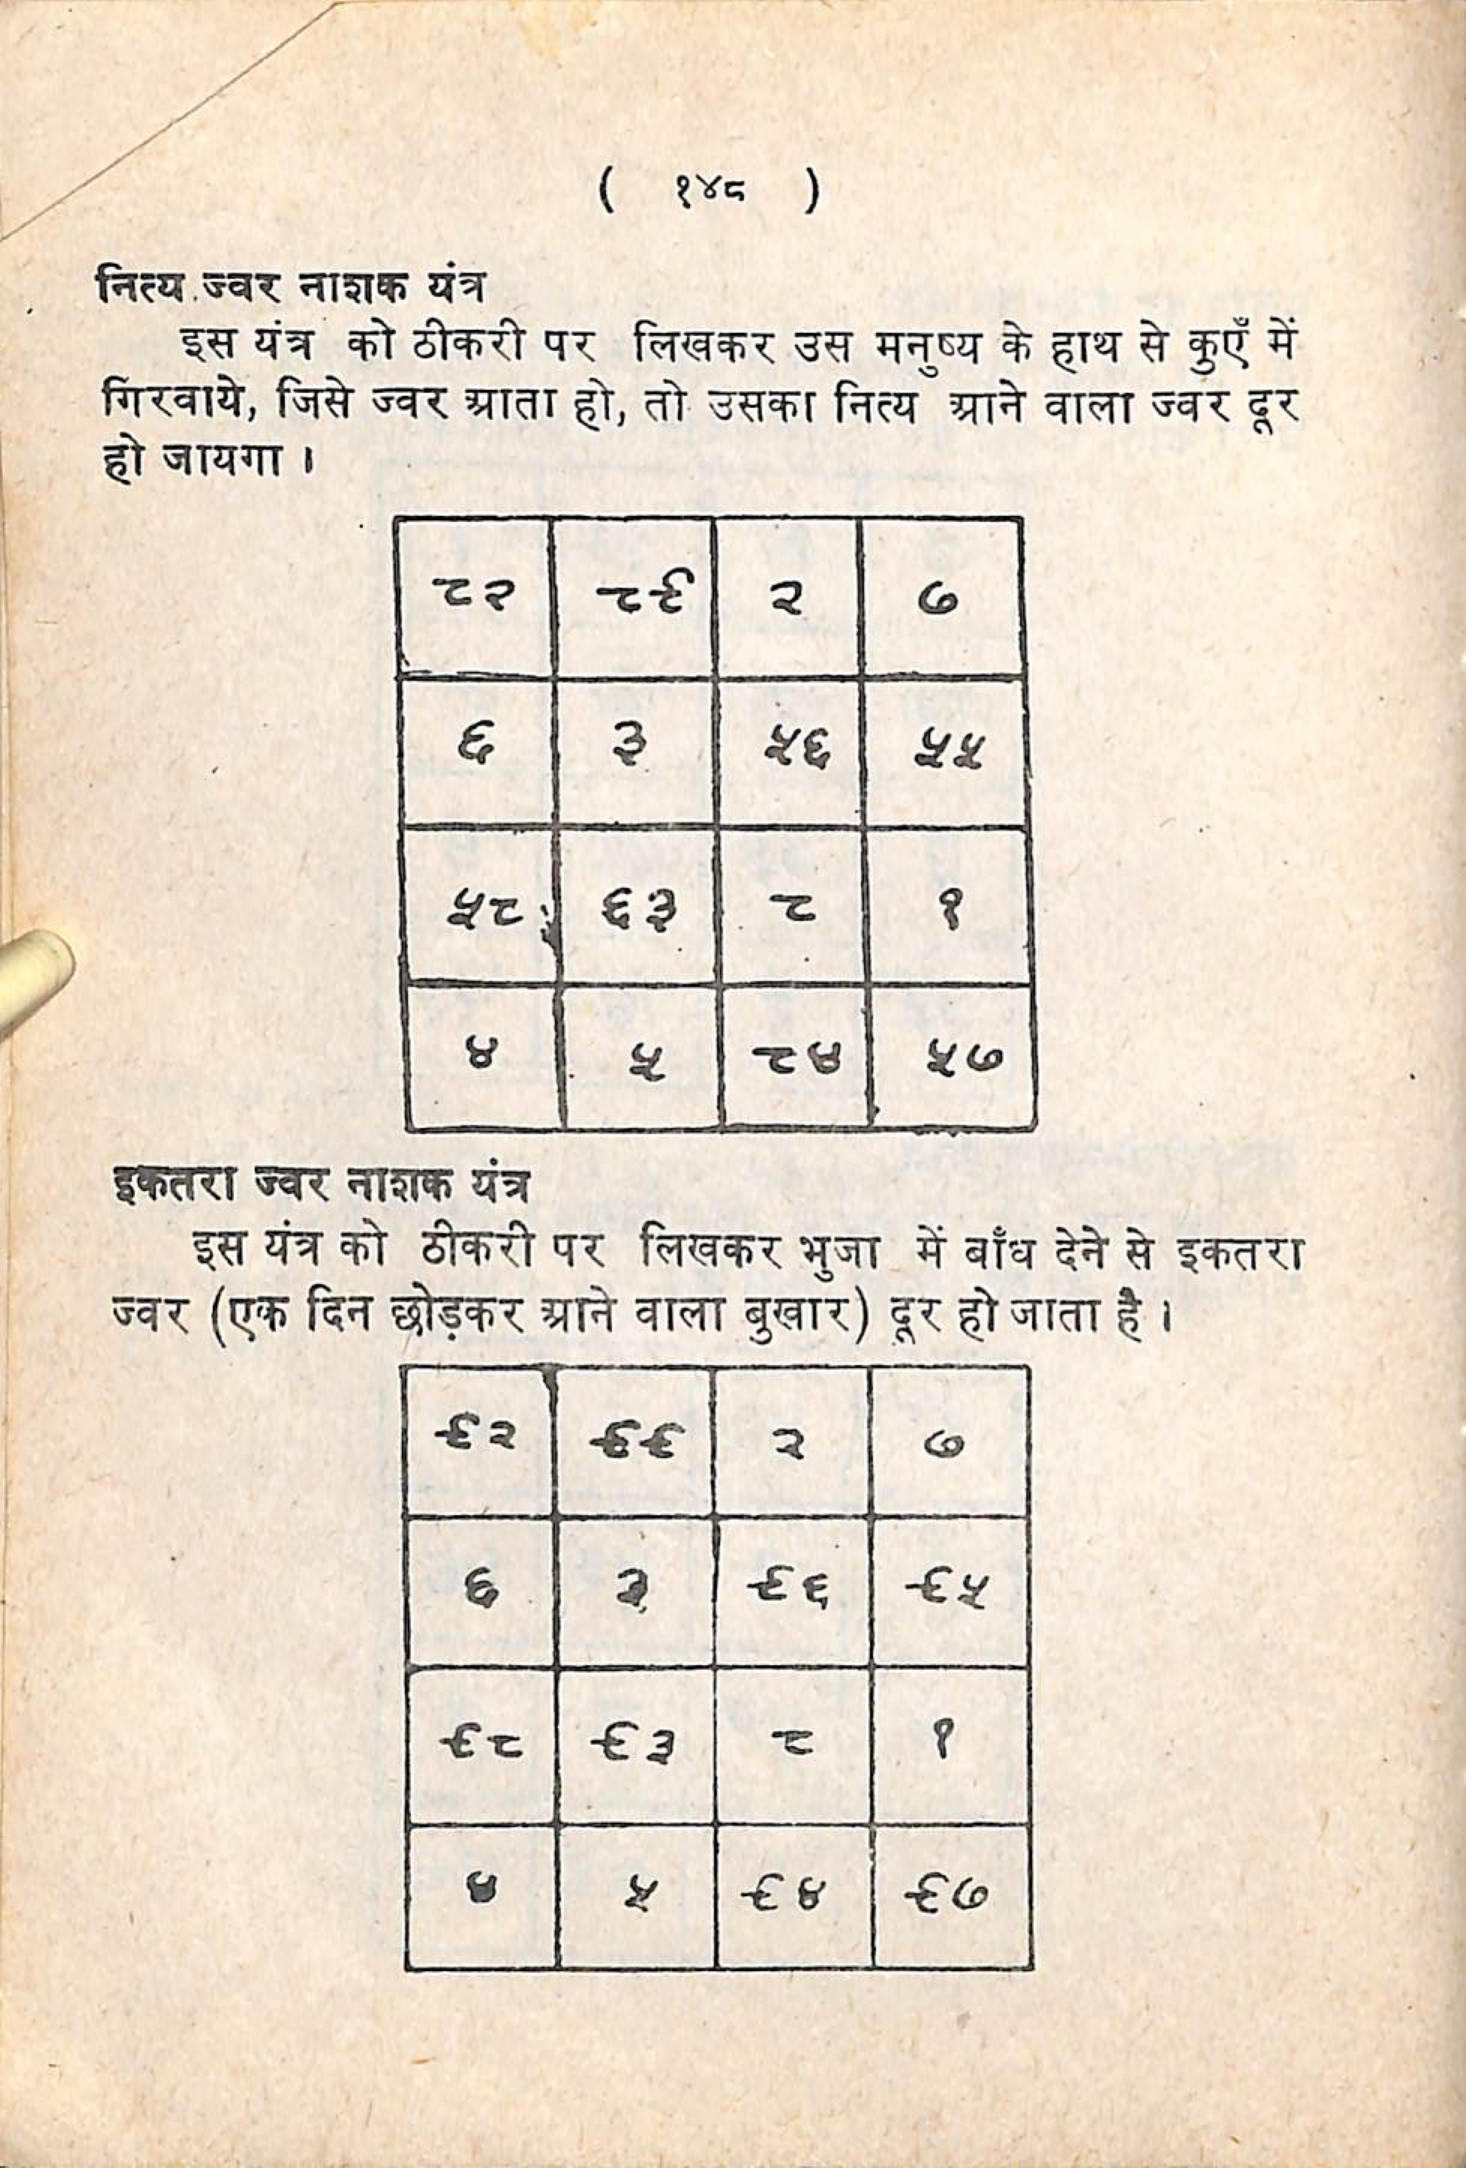 ( १४८ )
नित्य ज्वर नाशक यंत्र
इस यंत्र को ठीकरी पर लिखकर उस मनुष्य के हाथ से कुएँ में
गिरवाये, जिसे ज्वर आता हो, तो उसका नित्य आने वाला ज्वर दूर
हो जायगा ।
८२ ८९ २ ७
६ ३ ५६ ५५
५८ ६३ ८ १
४ ५ ८४ ५७
इकतरा ज्वर नाशक यंत्र
इस यंत्र को ठीकरी पर लिखकर भुजा में बाँध देने से इकतरा
ज्वर (एक दिन छोड़कर आने वाला बुखार) दूर हो जाता है ।
९२ ९९ २ ७
६ ३ ९६ ९५
९८ ९३ ८ १
४ ५ ९४ ९७